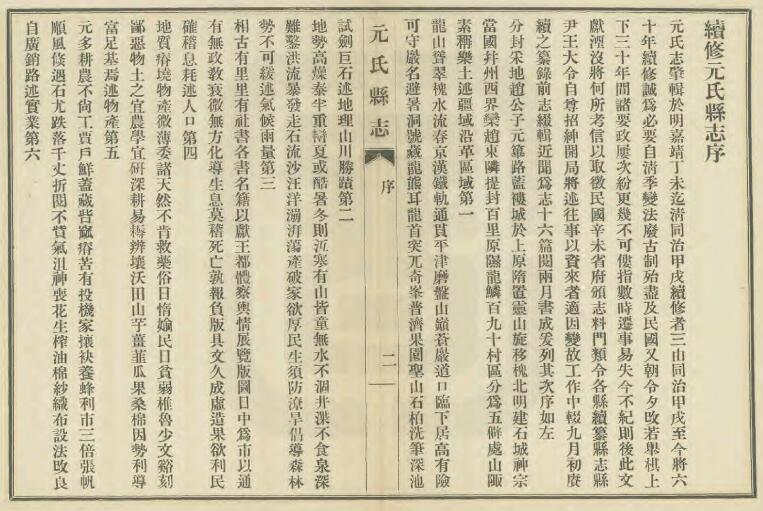 續修元氏縣志序
元氏志肇輯於明嘉靖丁未迄清同治甲戌續修者三由同治甲戌至今將六
十年續修誠爲必要自清季變法廢古制殆盡及民國又朝令夕改若舉棋上
下三十年間諸要政屢次紛更幾不可僂指數時遷事易失今不紀則後此文
獻湮沒將何所考信以取徵民國辛未省府頒志料門類令各縣續纂縣志縣
尹王大令自尊招紳開局將述往事以資來者適因變故工作中輟九月初賡
續之纂錄前志綴輯近聞爲志十六篇閱兩月書成爰列其次序如左
分封采地趙公子元篳路藍褸城於上原隋置靈山旋移槐北明建石城神宗
當國幷州西界欒趙東隣提封百里原隰龍鱗百九十村區分爲五僻處山陬
素稱樂土述疆域沿革區域第一
龍山聳翠槐水流春京漢鐵軌通貫平津磨盤山嶺蒼巖道口臨下居高有險
可守巖名避暑洞號藏龍熊耳龍首突兀奇峯普濟果園聖山石柏洗筆深池
元氏縣志
序
二
試劍巨石述地理山川勝蹟第二
地勢高燥泰半重巒夏或酷暑冬則沍寒有山皆童無水不涸井渫不食泉深
難鑿洪流暴發走石流沙汪洋溯湃蕩產破家欲厚民生須防潦旱倡導森林
勢不可緩述氣候雨量第三
相古有里里有社書各書名籍以獻王都體察輿情展覽版圖日中爲市以通
有無政敎衰微無方化導生息莫稽死亡孰報負版具文久成虛造果欲利民
確稽息耗述人口第四
地質瘠墝物產微薄委諸天然不肯救藥俗日惰媮民日貧弱椎魯少文谿刻
鄙惡物土之宜農學宜硏深耕易耨辨壤沃田山芋薑韮瓜果桑棉因勢利導
富足基焉述物產第五
元多耕農不尙工賈戶鮮蓋藏呰窳瘠苦有投機家攘袂養蜂利市三倍張帆
順風倏遇石尤跌落千丈折閱不貲氣沮神喪花生榨油棉紗織布設法改良
自廣銷路述實業第六